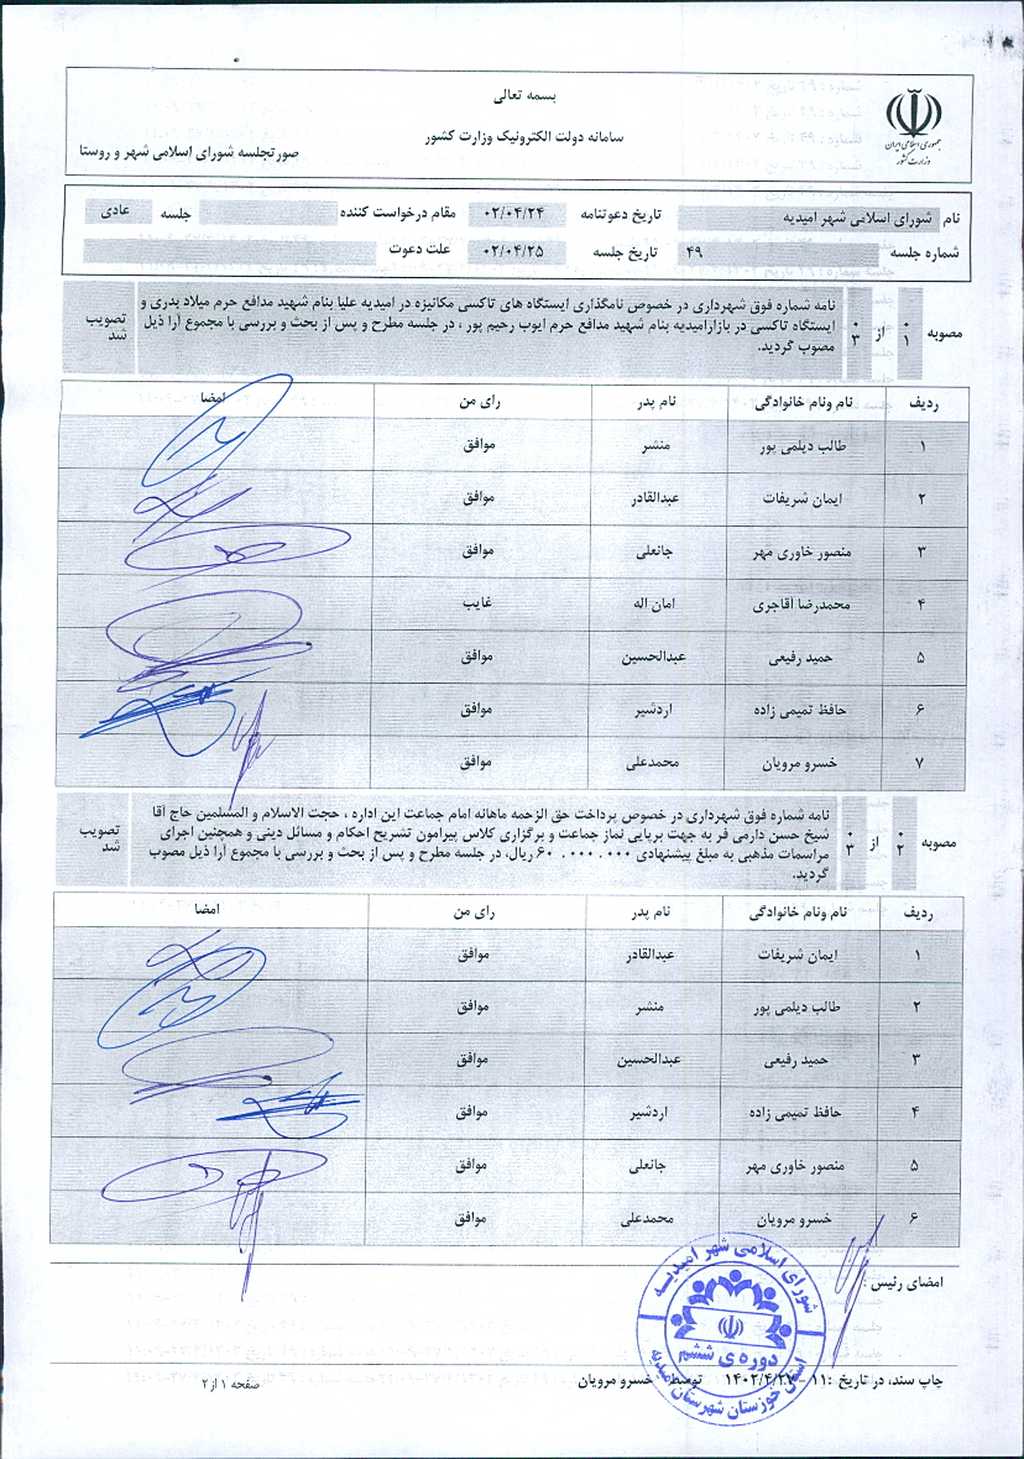 بسمه تعالی
جمهوری اسلامی ایران
وزارت کشور
سامانه دولت الکترونیک وزارت کشور
صورتجلسه شورای اسلامی شهر و روستا
نام شورای اسلامی شهر امیدیه تاریخ دعوتنامه ۰۲/۰۴/۲۴ مقام درخواست کننده جلسه عادی
شماره جلسه ۴۹ تاریخ جلسه ۰۲/۰۴/۲۵ علت دعوت
مصوبه ۰۱ از ۰۳
نامه شماره فوق شهرداری در خصوص نامگذاری ایستگاه های تاکسی مکانیزه در امیدیه علیا بنام شهید مدافع حرم میلاد بدری و
ایستگاه تاکسی در بازارامیدیه بنام شهید مدافع حرم ایوب رحیم پور ، در جلسه مطرح و پس از بحث و بررسی با مجموع آرا ذیل
مصوب گردید.
تصویب شد
ردیف نام ونام خانوادگی نام پدر رای من امضا
۱ طالب دیلمی پور منشر موافق
۲ ایمان شریفات عبدالقادر موافق
۳ منصور خاوری مهر جانعلی موافق
۴ محمدرضا آقاجری امان اله غایب
۵ حمید رفیعی عبدالحسین موافق
۶ حافظ تمیمی زاده اردشیر موافق
۷ خسرو مرویان محمدعلی موافق
مصوبه ۰۲ از ۰۳
نامه شماره فوق شهرداری در خصوص پرداخت حق الزحمه ماهانه امام جماعت این اداره ، حجت الاسلام و المسلمین حاج آقا
شیخ حسن دارمی فر به جهت برپایی نماز جماعت و برگزاری کلاس پیرامون تشریح احکام و مسائل دینی و همچنین اجرای
مراسمات مذهبی به مبلغ پیشنهادی ۶۰.۰۰۰.۰۰۰ ریال، در جلسه مطرح و پس از بحث و بررسی با مجموع آرا ذیل مصوب
گردید.
تصویب شد
ردیف نام ونام خانوادگی نام پدر رای من امضا
۱ ایمان شریفات عبدالقادر موافق
۲ طالب دیلمی پور منشر موافق
۳ حمید رفیعی عبدالحسین موافق
۴ حافظ تمیمی زاده اردشیر موافق
۵ منصور خاوری مهر جانعلی موافق
۶ خسرو مرویان محمدعلی موافق
امضای رئیس :
شورای اسلامی شهر امیدیه
دوره ی ششم
استان خوزستان شهرستان امیدیه
چاپ سند، در تاریخ :۱۱ - ۱۴۰۲/۴/۲۷ توسط خسرو مرویان
صفحه ۱ از ۲